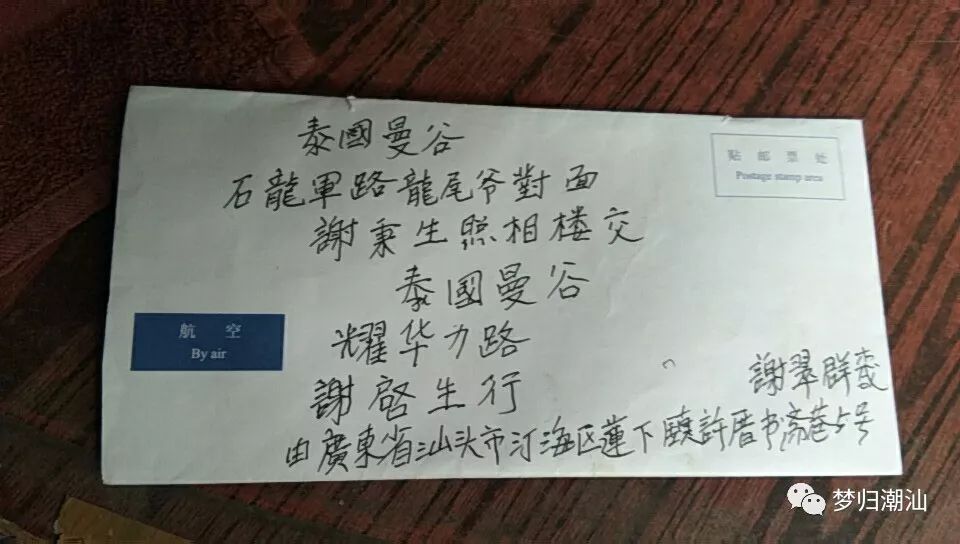 泰國曼谷
貼郵票处
Postage stamp area
石龍軍路龍尾爷對面
謝秉生照相楼交
泰國曼谷
航空
By air
耀华力路
謝啓生行
謝翠群
由廣東省汕头市汀海区蓮下鎮許厝书斋巷5号
梦归潮汕